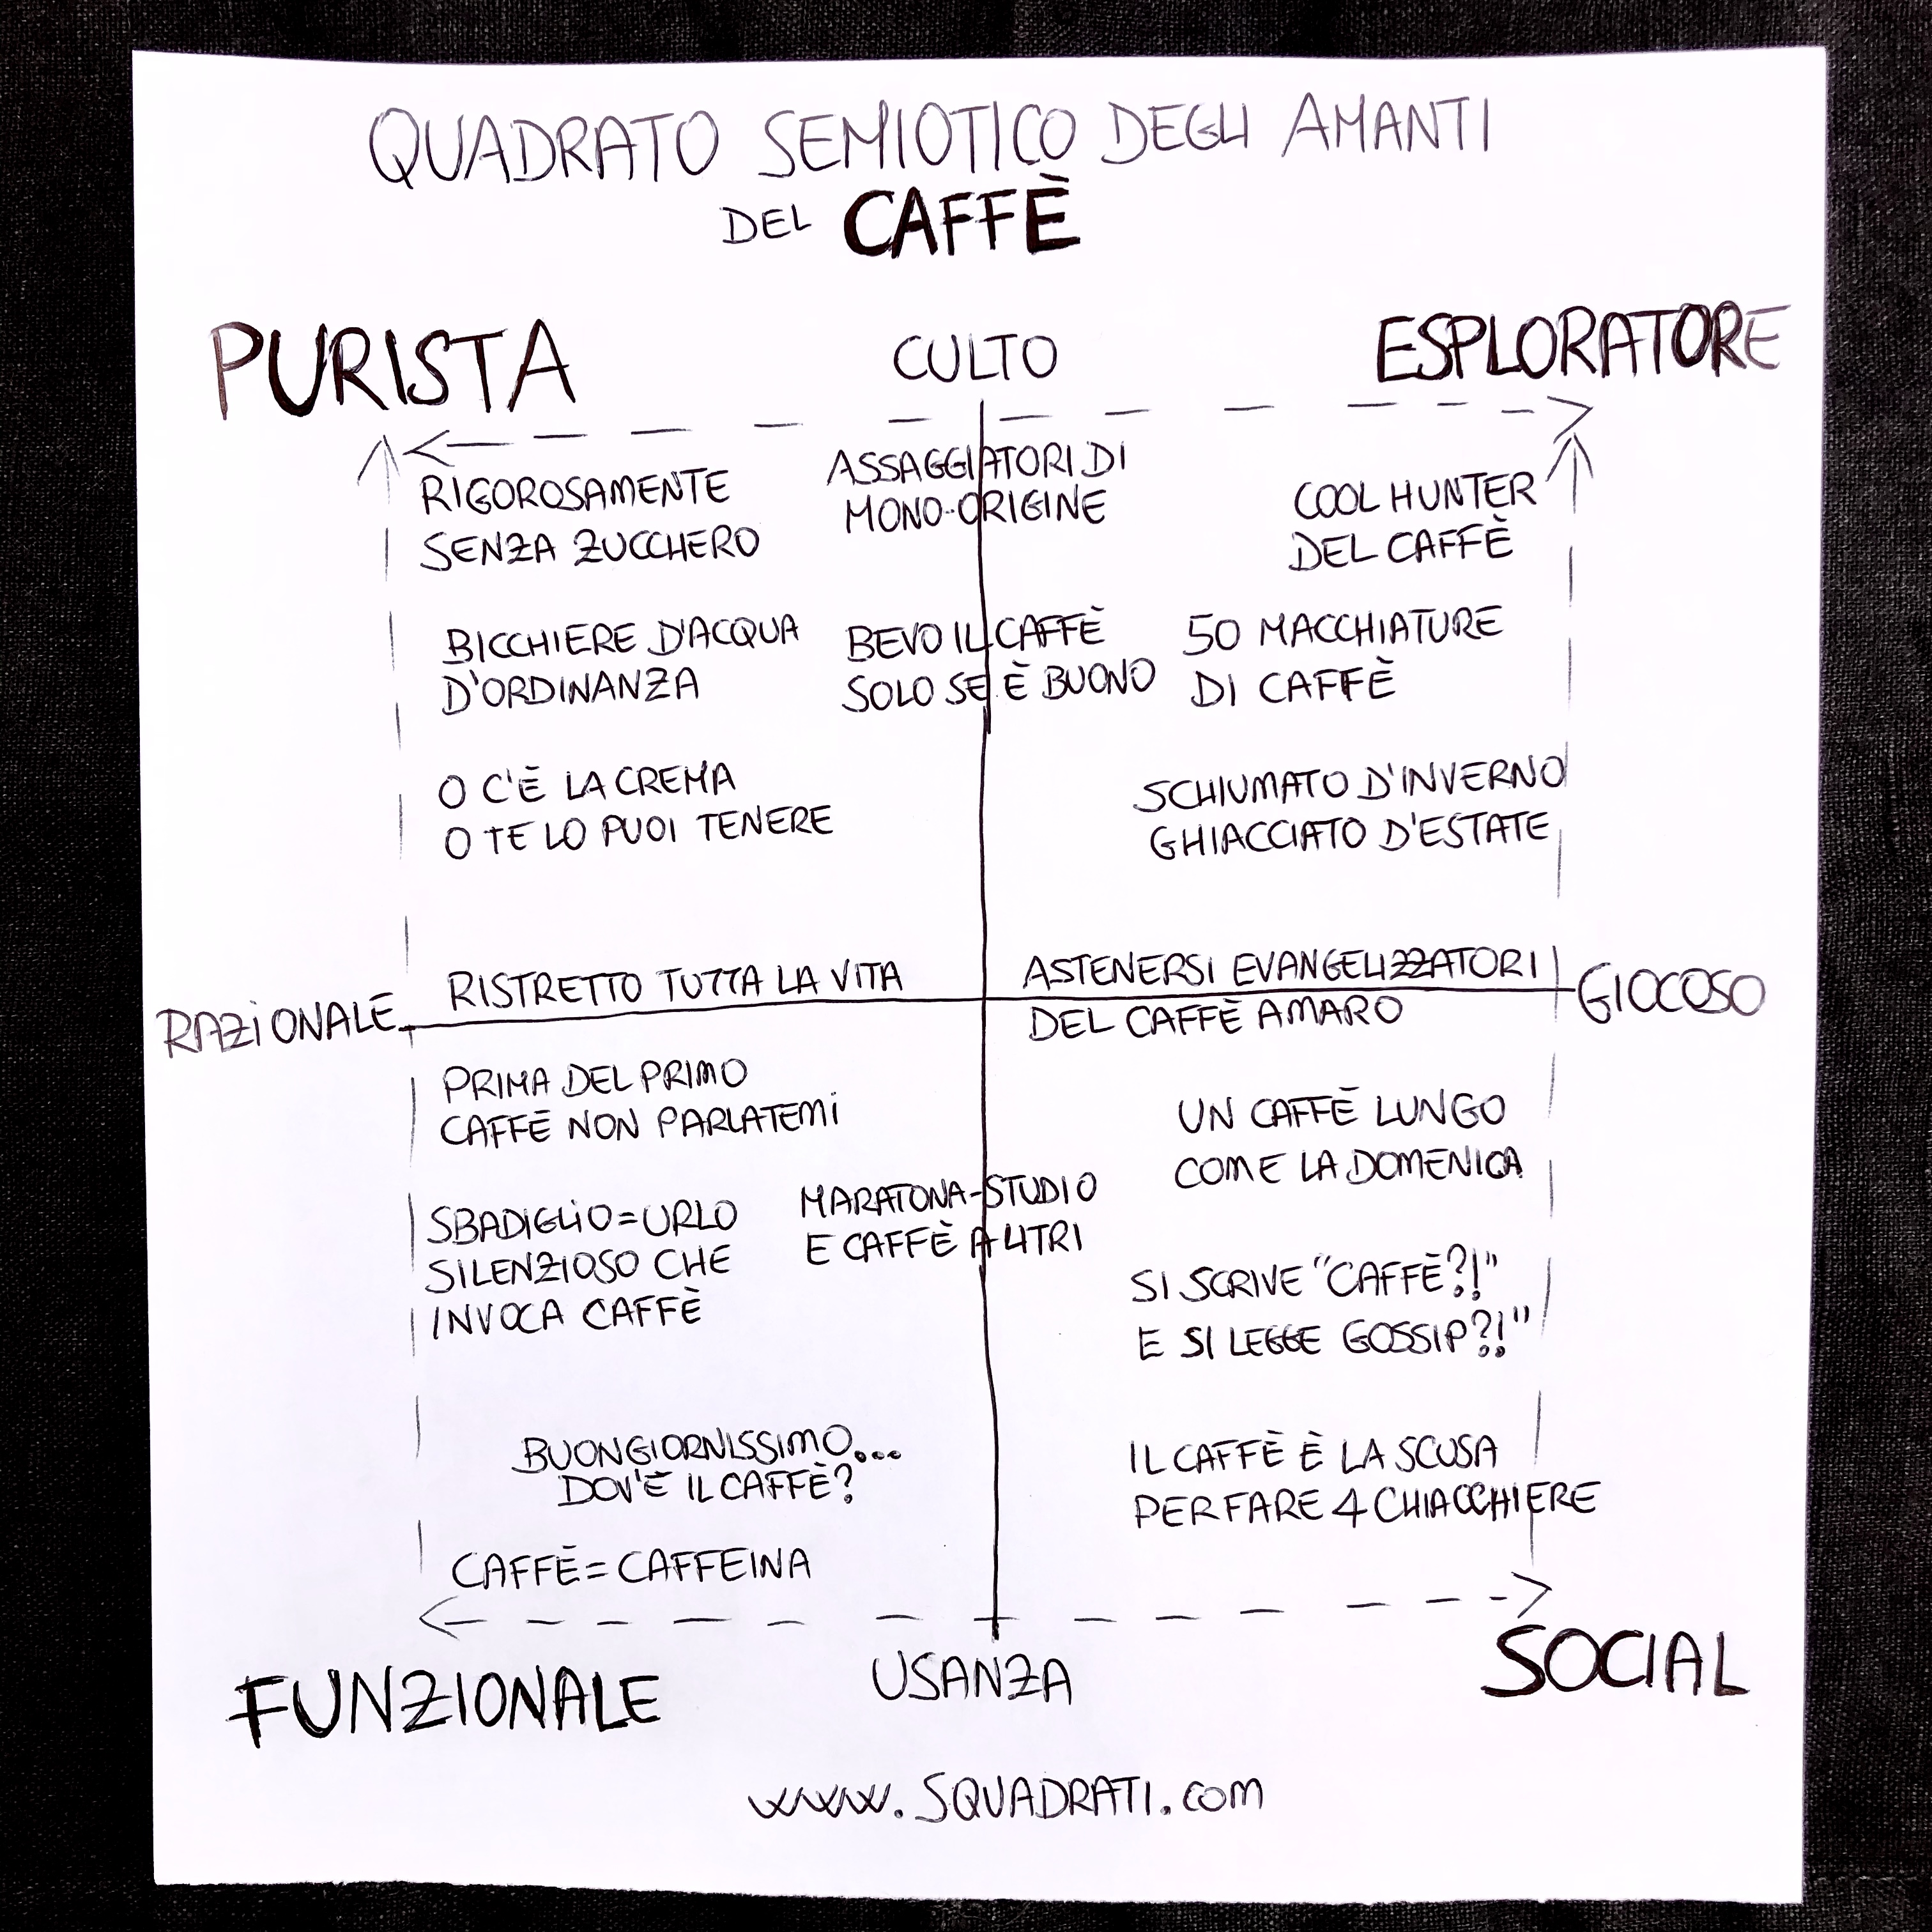 QUADRATO SEMIOTICO DEGLI AMANTI
DEL CAFFÈ
PURISTA
CULTO
ESPLORATORE
RIGOROSAMENTE
SENZA ZUCCHERO
ASSAGGIATORI DI
MONO-ORIGINE
COOL HUNTER
DEL CAFFÈ
BICCHIERE D'ACQUA
D'ORDINANZA
BEVO IL CAFFÈ
SOLO SE È BUONO
50 MACCHIATURE
DI CAFFÈ
O C'È LA CREMA
O TE LO PUOI TENERE
SCHIUMATO D'INVERNO
GHIACCIATO D'ESTATE
RAZIONALE
RISTRETTO TUTTA LA VITA
ASTENERSI EVANGELIZZATORI
DEL CAFFÈ AMARO
GIOCOSO
PRIMA DEL PRIMO
CAFFÈ NON PARLATEMI
UN CAFFÈ LUNGO
COME LA DOMENICA
SBADIGLIO=URLO
SILENZIOSO CHE
INVOCA CAFFÈ
MARATONA-STUDIO
E CAFFÈ A LITRI
SI SCRIVE "CAFFÈ?!"
E SI LEGGE GOSSIP?!"
BUONGIORNISSIMO...
DOV'È IL CAFFÈ?
IL CAFFÈ È LA SCUSA
PER FARE 4 CHIACCHIERE
CAFFÈ=CAFFEINA
FUNZIONALE
USANZA
SOCIAL
www.SQUADRATI.com